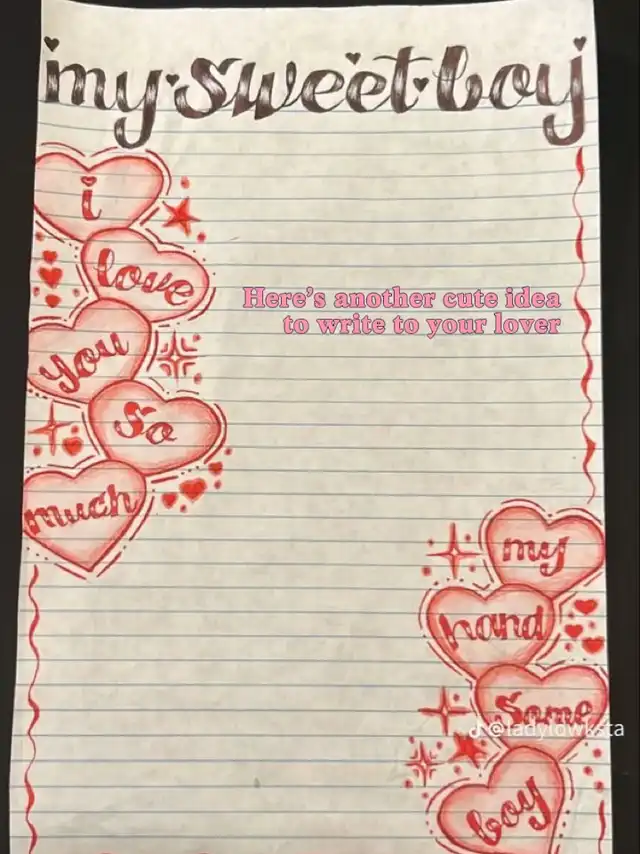 my sweet boy
i
love
you
so
much
Here's another cute idea
to write to your lover
my
hand
some
boy
@ladylowksta